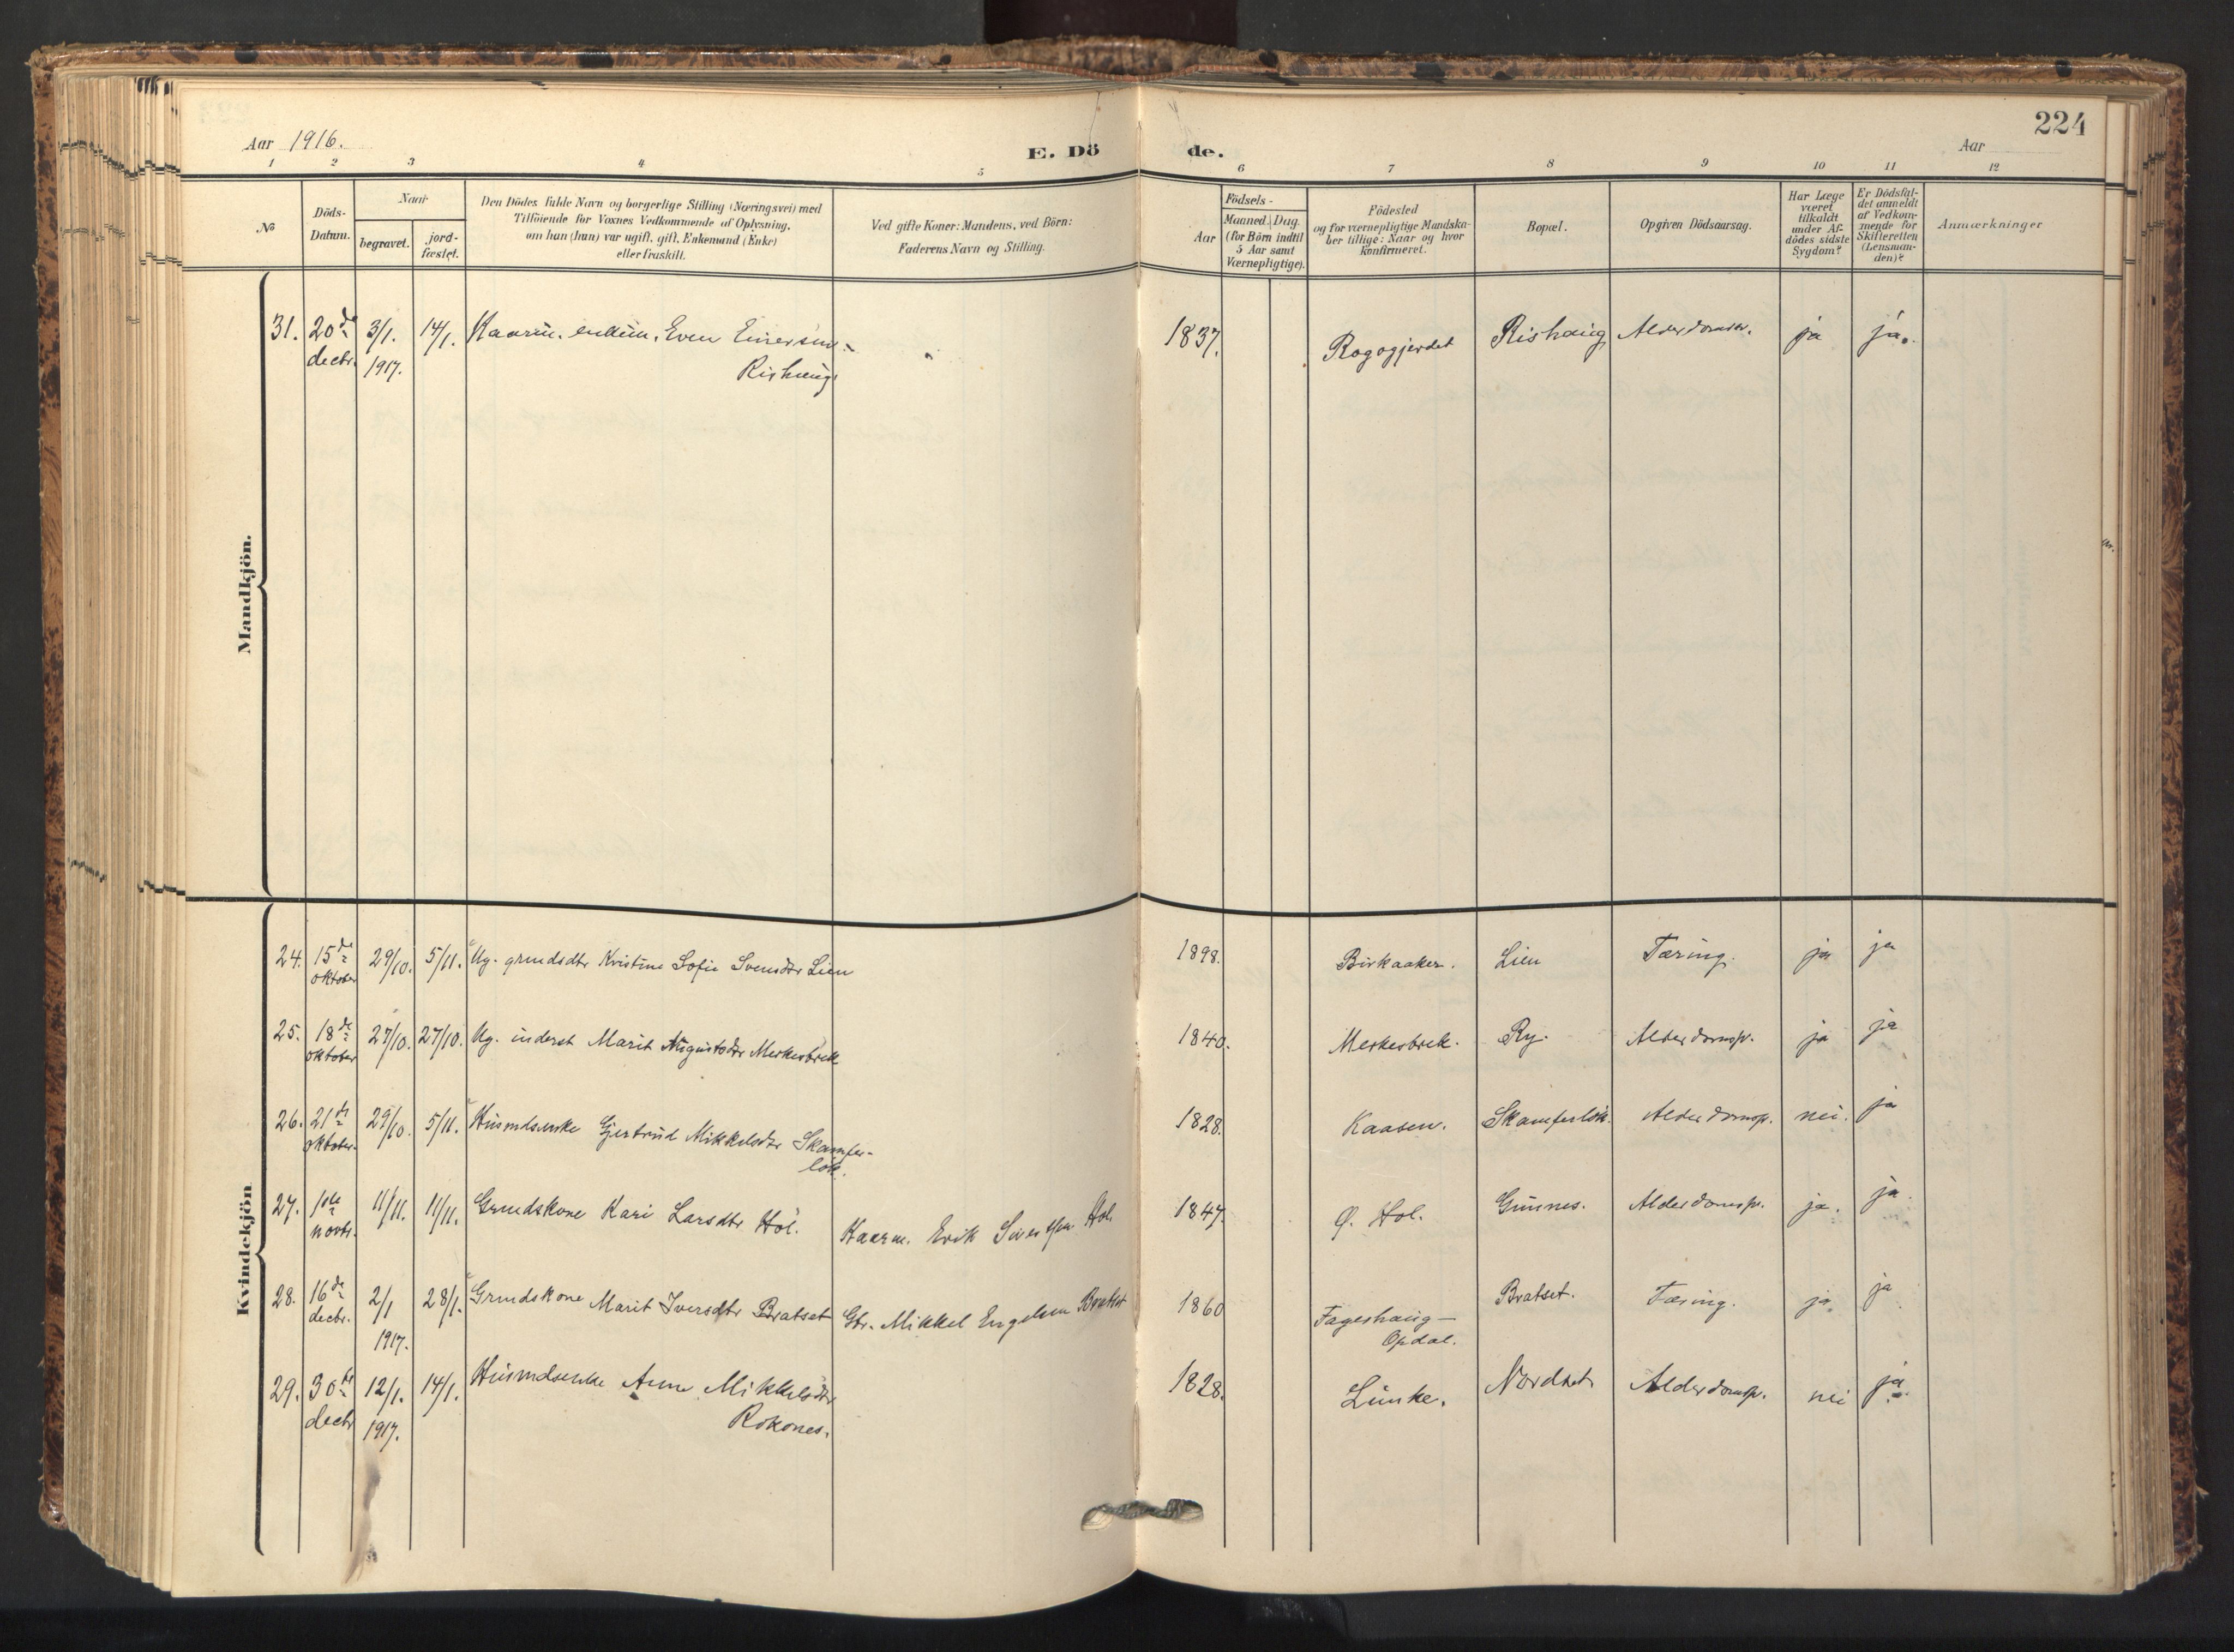 224
Aar 1916.
E. Dö de.
Aar
1 2 3 4 5 6 7 8 9 10 11 12
No
Döds-
Datum.
Naar
begravet.
jord-
fæstet.
Den Dödes fulde Navn og borgerlige Stilling (Næringsvei) med
Tilföiende for Voxnes Vedkommende af Oplysning,
om han (hun) var ugift, gift, Enkemand (Enke)
eller fraskilt.
Ved gifte Koner: Mandens, ved Börn:
Faderens Navn og Stilling.
Födsels-
Aar
Maaned. Dag.
(for Börn indtil
5 Aar samt
Værnepligtige).
Födested
og for værnepligtige Mandska-
ber tillige: Naar og hvor
konfirmeret.
Bopæl.
Opgiven Dödsaarsag.
Har Læge
været
tilkaldt
under Af-
dödes sidste
Sygdom?
Er Dödsfal-
det anmeldt
af Vedkom-
mende for
Skifteretten
(Lensman-
den)?
Anmærkninger
Mandkjön.
31. 20de 3/1. 14/1. Kaarm. enkem. Even Einersen 1837. Rogogjerdet Rishaug Alderdomssv. ja ja.
decbr. 1917. Rishaug
Kvindekjön
24. 15de 29/10. 5/11. Ug. grmdsdtr Kristine Sofie Svensdtr Lien 1898. Birkaaker. Lien Tæring. ja ja
oktober
25. 18de 27/10. 27/10. Ug. inderst Marit Augustsdtr Merkesbrek 1840. Merkesbrek. Ry. Alderdomssv. ja ja
oktober
26. 21de 29/10. 5/11. Husmdsenke Gjertrud Mikkelsdtr Skamfer- 1828. Kaasen. Skamferlök. Alderdomssv. nei. ja
oktober. lök.
27. 1ste 11/11. 11/11. Grmdskone Kari Larsdtr Hol. Kaarm. Erik Sivertsen Hol. 1847. Ø. Hol. Gunnes. Alderdomssv. ja. ja.
novbr.
28. 16de 2/1 28/1. Grmdskone Marit Iversdtr Bratset Gbr. Mikkel Engelsen Bratset 1860 Fageshaug- Bratset. Tæring. ja. ja
decbr. 1917. Opdal.
29. 30te 12/1. 14/1. Husmdsenke Anne Mikkelsdtr 1828. Lunke. Nordset Alderdomssv. nei ja.
decbr 1917. Rokones.